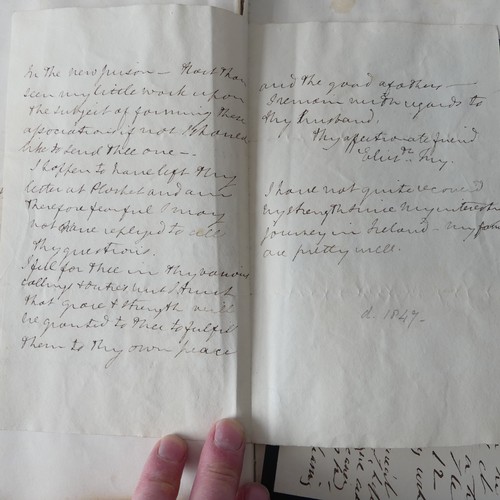 In the new prison – Hast thou
seen my little work upon
the subject of forming these
associations if not I should
like to send thee one –
I happen to have left thy
letter at Plashet and am
therefore fearful I may
not have replyed to all
thy questions.
I feel for thee in thy various
callings & duties but I trust
that grace & strength will
be granted to thee to fulfil
them to thy own peace
and the good of others –
I remain with regards to
thy husband.
Thy affectionate friend
Elizth. Fry.
I have not quite recovered
my strength since my interesting
journey in Ireland – my family
are pretty well.
d. 1847 –